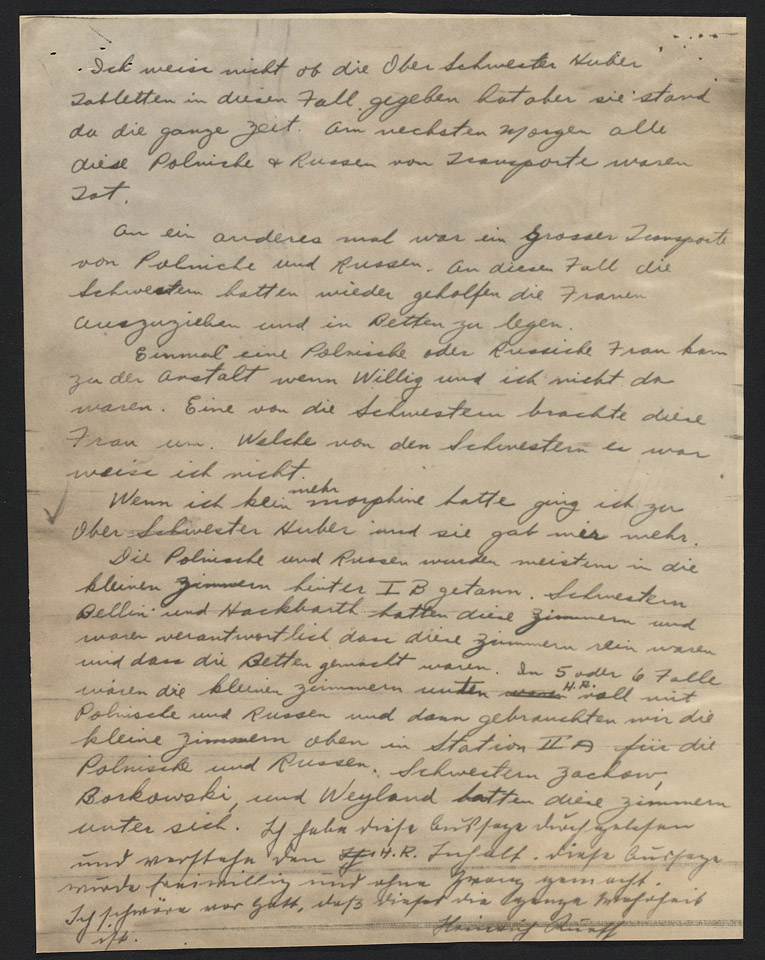 Ich weiss nicht ob die Ober Schwester Huber
Tabletten in diesen Fall gegeben hat aber sie stand
da die ganze Zeit. Am nechsten Morgen alle
diese Polniche & Russen von Transporte waren
Tot.
An ein anderes mal war ein grosser Transporte
von Polniche und Russen. An diesen Fall die
Schwestern hatten wieder geholfen die Frauen
auszuziehen und in Betten zu legen.
Einmal eine Polnische oder Russische Frau kam
zu der Anstalt wenn Willig und ich nicht da
waren. Eine von die Schwestern brachte diese
Frau um. Welche von den Schwestern es war
weiss ich nicht.
Wenn ich klein mehr morphine hatte ging ich zu
Ober Schwester Huber und sie gab mir mehr.
Die Polnische und Russen wurden meistens in die
kleinen zimmern hinter I B getann. Schwestern
Bellin und Hackbarth hatten diese zimmern und
waren verantwortlich dass diese zimmern rein waren
und dass die Betten gemacht waren. In 5 oder 6 Falle
waren die kleinen zimmern unten H.R. voll mit
Polnische und Russen und dann gebrauchten wir die
kleine zimmern oben in Station II A für die
Polnische und Russen. Schwestern Zachow,
Borkowski, und Weyland hatten diese zimmern
unter sich. Ich habe diese Aussage durchgelesen
und verstehe den H.R. Inhalt. Diese Aussage
wurde freiwillig und ohne Zwang gemacht.
Ich schwöre vor Gott, daß dieses die ganze Wahrheit
ist. Heinrich Ruoff